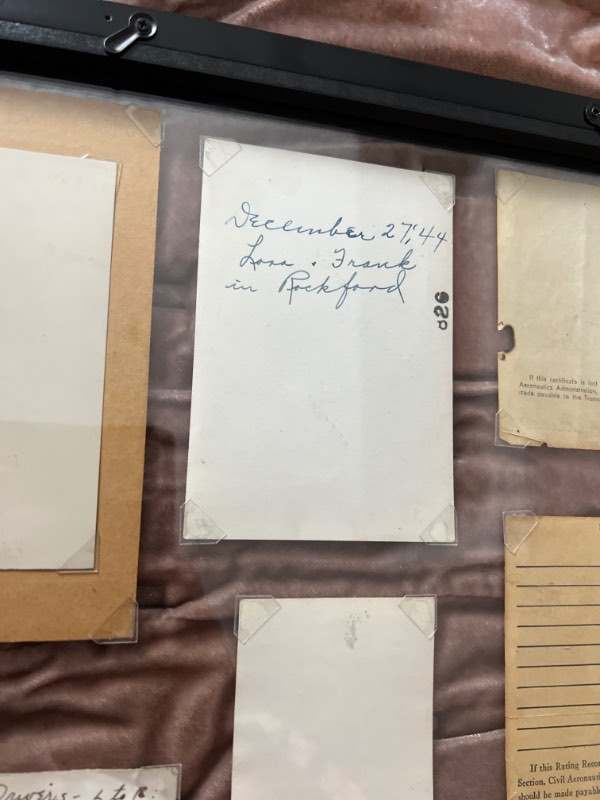 December 27, '44
Lora . Frank
in Rockford
d26
If this certificate is lost
Aeronautics Administration,
made payable to the
If this Rating
Section, Civil
should be made
Drawing - L to R: